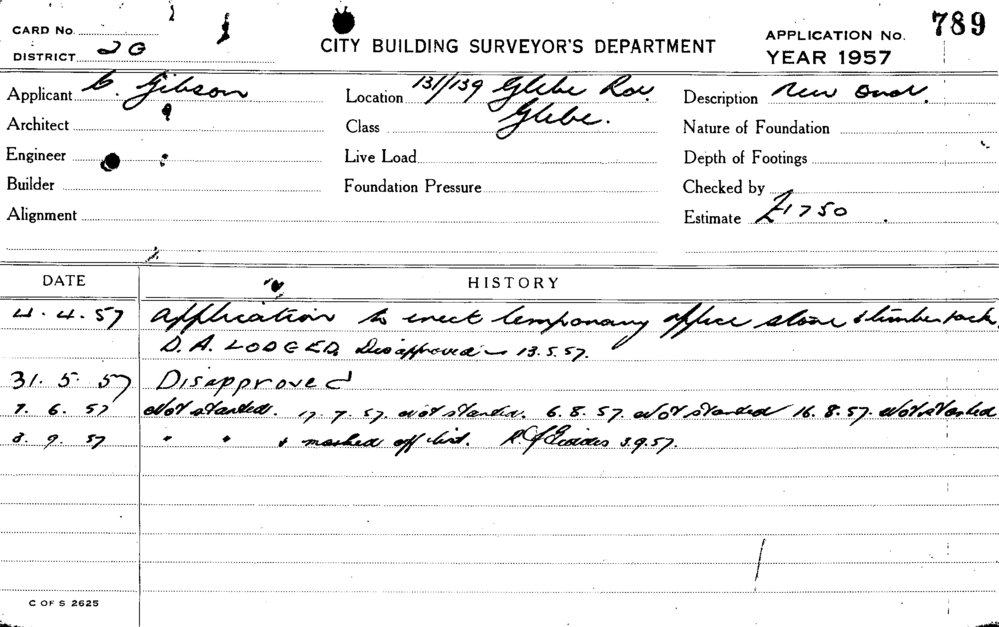 CARD No.
DISTRICT 2G
CITY BUILDING SURVEYOR'S DEPARTMENT
APPLICATION No. 789
YEAR 1957
Applicant C. Gibson
Location 131/139 Glebe Rd.
Glebe.
Description New
Architect
Class
Nature of Foundation
Engineer
Live Load
Depth of Footings
Builder
Foundation Pressure
Checked by
Alignment
Estimate £1750
DATE HISTORY
4.4.57 Application to erect temporary office store & timber rack.
D.A. LODGED. Disapproved 13.5.57.
31.5.57 Disapproved
7.6.57 Not started. 17.7.57. Not started. 6.8.57. Not started 16.8.57. Not started
3.9.57 " " & marked off list. 3.9.57.
C OF S 2625